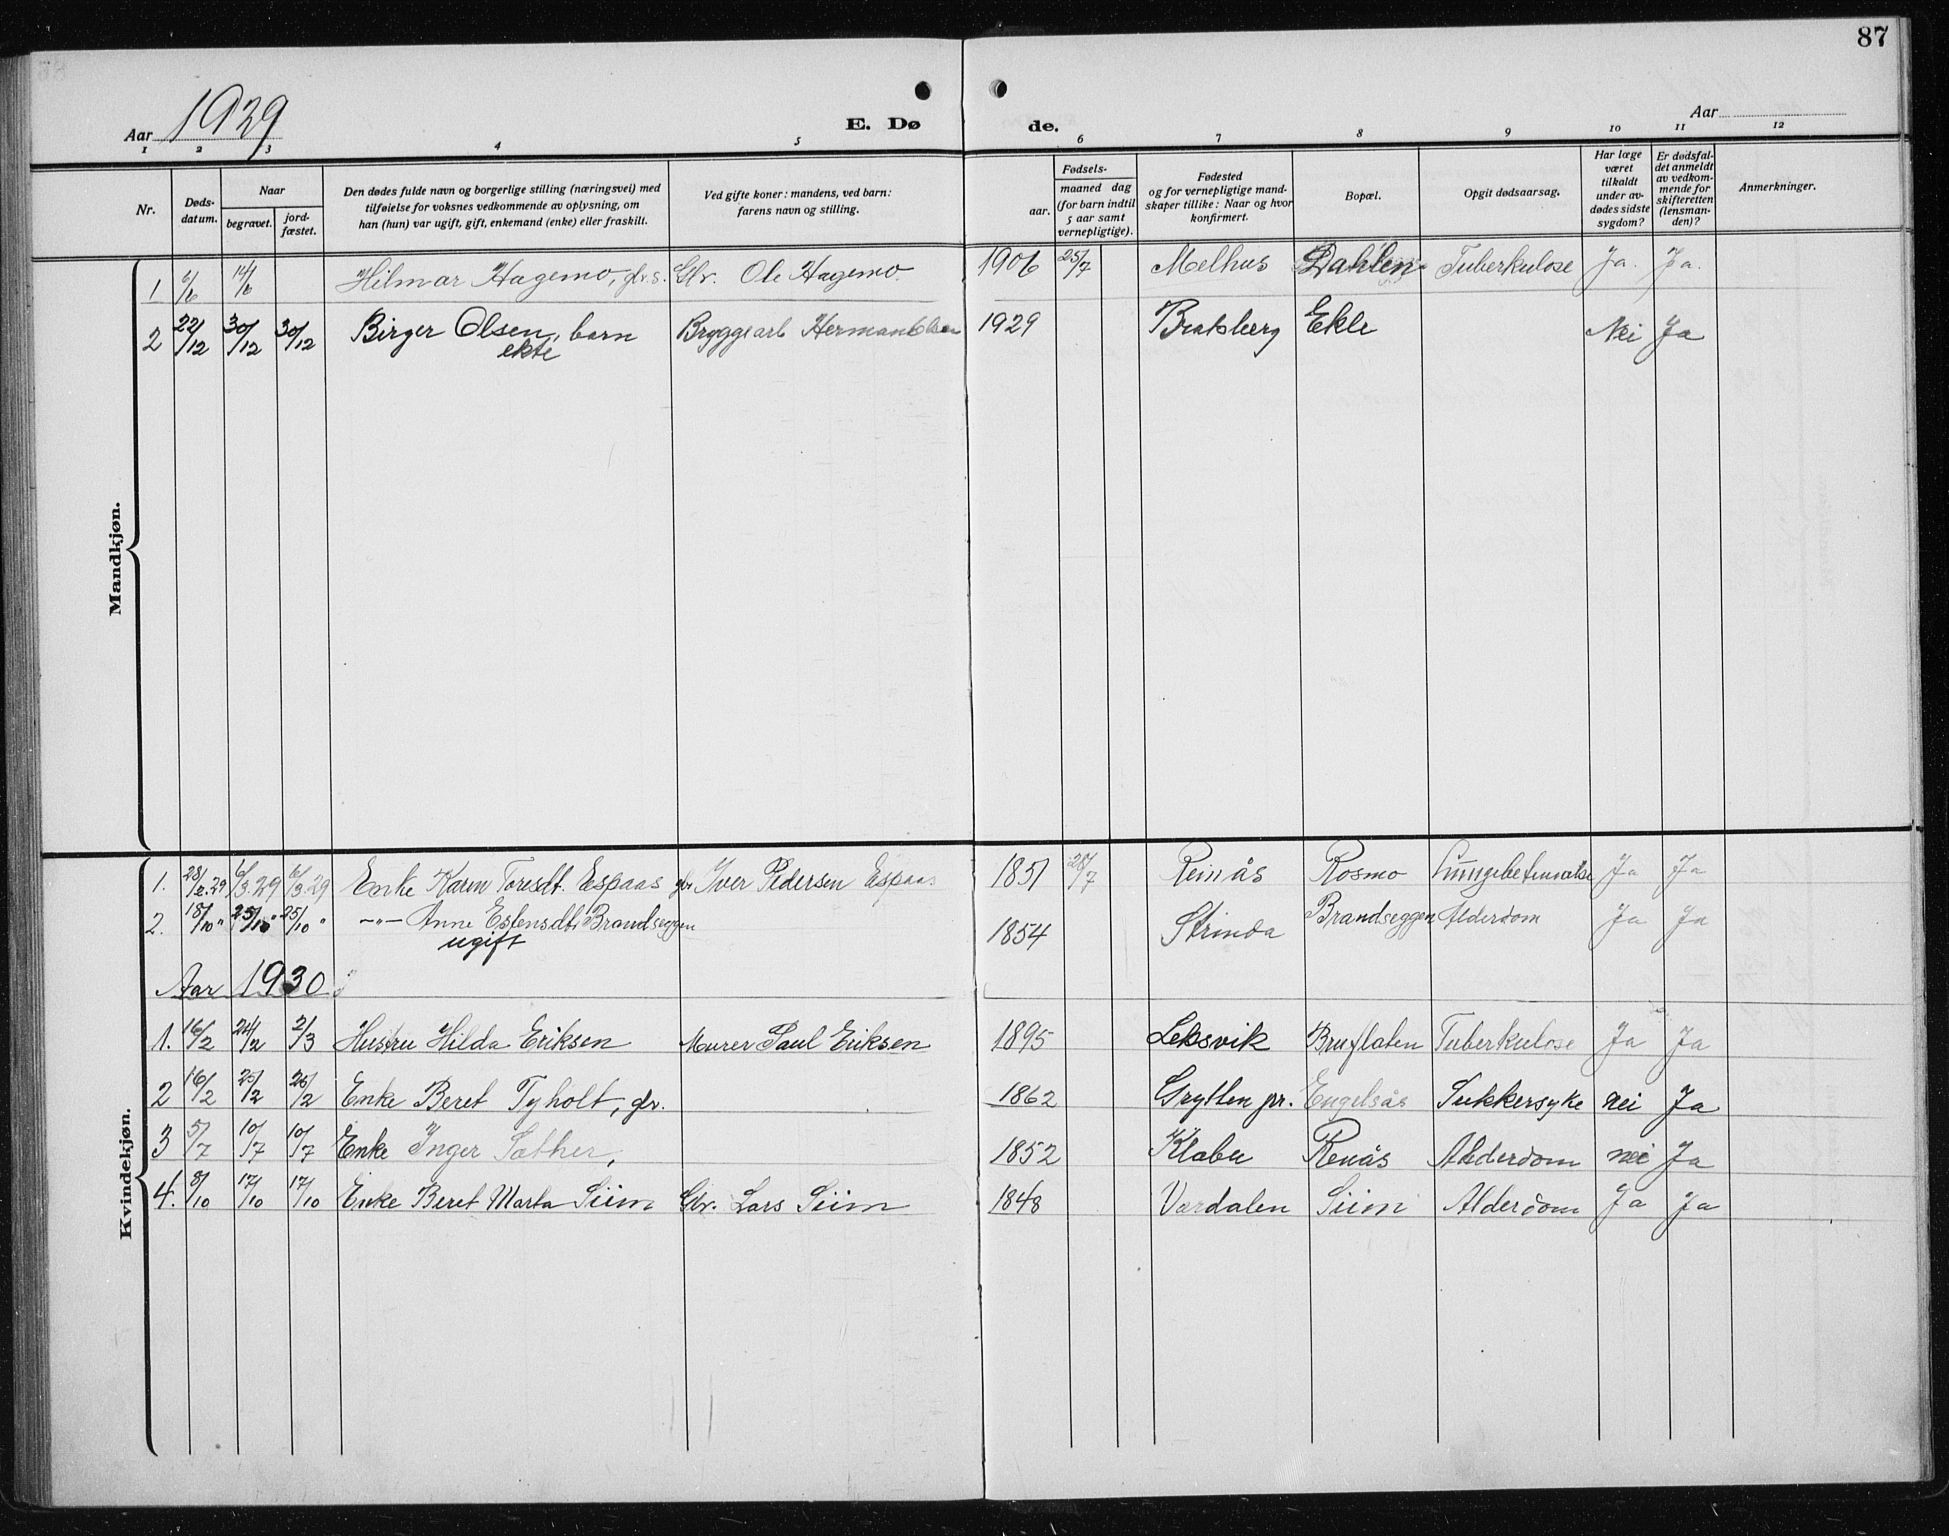 87
Aar 1929
E. Dø de.
Aar
1 2 3 4 5 6 7 8 9 10 11 12
Nr. Døds-datum. Naar begravet. jord-fæstet. Den dødes fulde navn og borgerlige stilling (næringsvei) med tilføielse for voksnes vedkommende av oplysning, om han (hun) var ugift, gift, enkemand (enke) eller fraskilt. Ved gifte koner: mandens, ved barn: farens navn og stilling. Fødsels- aar. maaned dag (for barn indtil 5 aar samt vernepligtige). Fødested og for vernepligtige mand-skaper tillike: Naar og hvor konfirmert. Bopæl. Opgit dødsaarsag. Har læge været tilkaldt under av-dødes sidste sygdom? Er dødsfal-det anmeldt av vedkom-mende for skifteretten (lensman-den)? Anmerkninger.
Mandkjøn.
1 6/6 14/6 Hilmar Hagemo, gbr.s. Gbr. Ole Hagemo 1906 25/7 Melhus Dahlen Tuberkulose Ja. Ja.
2 22/12 30/12 30/12 Birger Olsen, barn Bryggearb Herman Olsen 1929 Bratsberg Ekle Nei Ja
ekte
Kvindekjøn.
1. 28/2.29 6/3.29 6/3.29 Enke Karen Toresdt. Espaas gbr Iver Pedersen Espaas 1851 28/7 Reinås Rosmo Lungebetennelse Ja Ja
2. 18/10 " 25/10 " 25/10 " —"— Anne Estensdt. Brandseggen 1854 Strinda Brandseggen Alderdom Ja Ja
ugift
Aar 1930
1. 16/2 24/2 2/3 Hustru Hilda Eriksen Murer Paul Eriksen 1895 Leksvik Bruflaten Tuberkulose Ja Ja
2 16/2 25/2 26/2 Enke Beret Tyholt, gbr. 1862 Grytten pr. Engelsås Sukkersyke nei Ja
3 5/7 10/7 10/7 Enke Inger Sæther, 1852 Klæbu Renås Alderdom nei Ja
4. 8/10 17/10 17/10 Enke Beret Marta Siim Gbr. Lars Siim 1848 Værdalen Siim Alderdom Ja Ja